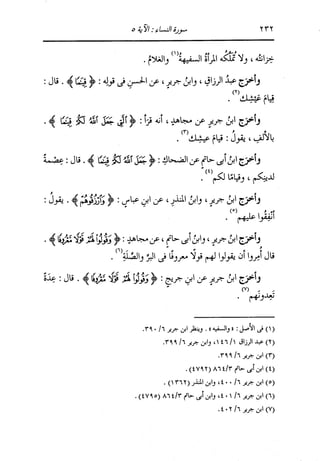 ٢٣٢ سورة النساء : الآية ٥
خزانته ، ولا تملكه المرأة السفيهة(١) والغلام .
وأخرج عبد الرزاق ، وابن جرير ، عن الحسن فى قوله : ﴿ قِيَٰمًا ﴾ . قال :
قيام عيشك(٢) .
وأخرج ابن جرير عن مجاهد ، أنه قرأ : ﴿ ٱلَّتِى جَعَلَ ٱللَّهُ لَكُمْ قِيَٰمًا ﴾ .
بالألف ، يقول : قيام عيشك(٣) .
وأخرج ابن أبى حاتم عن الضحاك : ﴿ ٱلَّتِى جَعَلَ ٱللَّهُ لَكُمْ قِيَٰمًا ﴾ . قال : عصمة
لدينكم ، وقيامًا لكم(٤) .
وأخرج ابن جرير ، وابن المنذر ، عن ابن عباس : ﴿ وَٱرْزُقُوهُمْ ﴾ . يقول :
أنفقوا عليهم(٥) .
وأخرج ابن جرير ، وابن أبى حاتم ، عن مجاهد : ﴿ وَقُولُوا۟ لَهُمْ قَوْلًا مَّعْرُوفًا ﴾ .
قال أمروا أن يقولوا لهم قولًا معروفًا فى البر والصلة(٦) .
وأخرج ابن جرير عن ابن جريج : ﴿ وَقُولُوا۟ لَهُمْ قَوْلًا مَّعْرُوفًا ﴾ . قال : عدة
تعدونهم(٧) .
(١) فى الأصل : « والسفيه » . وينظر ابن جرير ٦/ ٣٩٠.
(٢) عبد الرزاق ١/ ١٤٦، وابن جرير ٦/ ٣٩٩.
(٣) ابن جرير ٦/ ٣٩٩.
(٤) ابن أبى حاتم ٣/ ٨٦٤ (٤٧٩٢) .
(٥) ابن جرير ٦/ ٤٠٠، وابن المنذر (١٣٦٢) .
(٦) ابن جرير ٦/ ٤٠١، وابن أبى حاتم ٣/ ٨٦٤ (٤٧٩٥) .
(٧) ابن جرير ٦/ ٤٠٢.